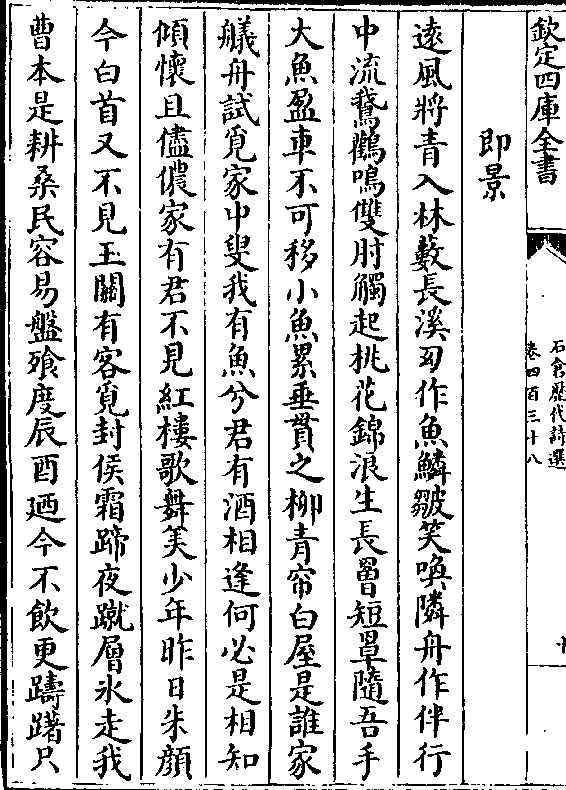 欽定四庫全書
石倉歴代詩選
卷四百三十八
即景
遠風將青入林藪長溪刄作魚鱗皺笑喚隣舟作伴行
中流鵞鸛鳴雙肘觸起桃花錦浪生長罾短罩隨吾手
大魚盈車不可移小魚累垂貫之柳青帘白屋是誰家
艤舟試覓家中叟我有魚兮君有酒相逢何必是相知
傾懐且儘儂家有君不見紅樓歌舞美少年昨日朱顔
今白首又不見玉關有客覓封侯霜蹄夜蹴層氷走我
曹本是耕桑民容易盤飱度辰酉廼今不飲更躊躇只